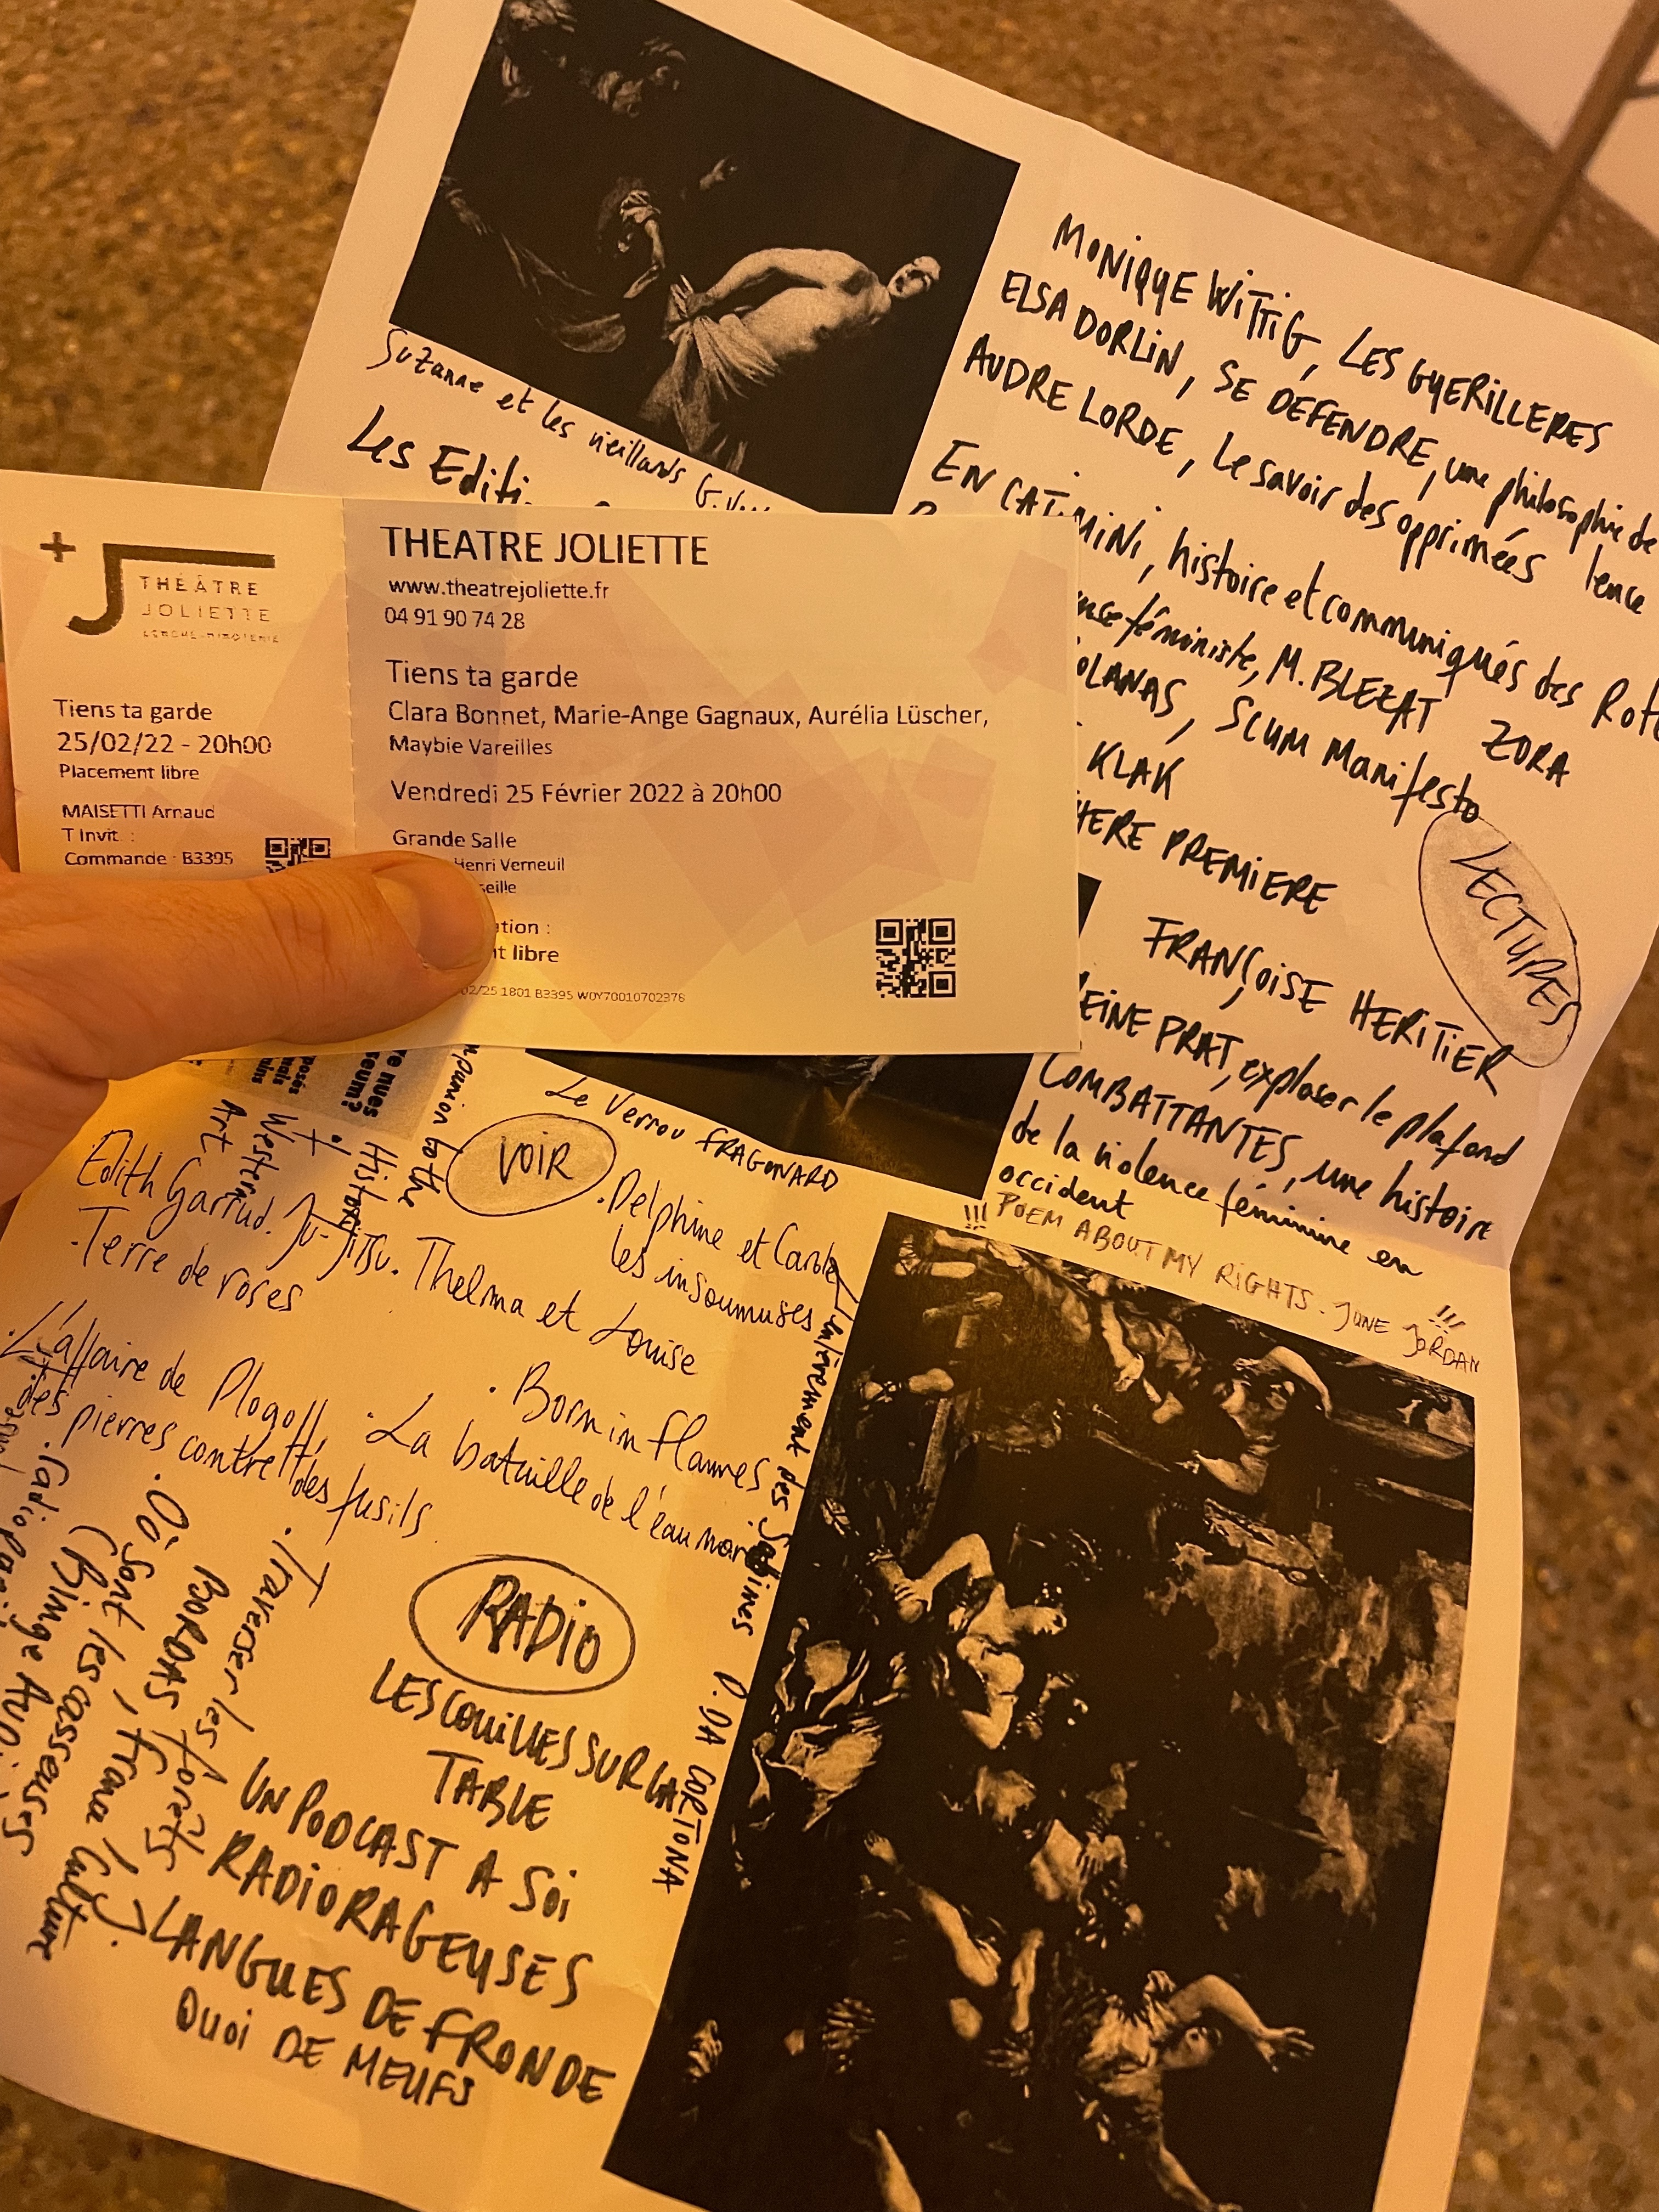 Suzanne et les vieillards G.
Les Editi
MONIQUE WITTIG, LES GUERILLERES
ELSA DORLIN, SE DEFENDRE, une philosophie de
lence
AUDRE LORDE, Le savoir des opprimées
EN CATIMINI, histoire et communiqués des Rote
ZORA
féministe, M. BLEZAT
OLANAS, SCUM Manifesto
KLAK
PREMIERE
LECTURES
FRANÇOISE HERITIER
EINE PRAT, exploser le plafond
COMBATTANTES, une histoire
de la violence féminine en
occident
!!! POEM ABOUT MY RIGHTS. JUNE JORDAN !!!
+J THÉÂTRE
JOLIETTE
Tiens ta garde
25/02/22 - 20h00
Placement libre
MAISETTI Arnaud
T Invit :
Commande : B3395
THEATRE JOLIETTE
www.theatrejoliette.fr
04 91 90 74 28
Tiens ta garde
Clara Bonnet, Marie-Ange Gagnaux, Aurélia Lüscher,
Maybie Vareilles
Vendredi 25 Février 2022 à 20h00
Grande Salle
Henri Verneuil
seille
ation :
t libre
02/25 1801 B3395 W0Y70010702376
Le Verrou FRAGONARD
VOIR
. Delphine et Carole
les insoumuses
Edith Garrud. Ju-Jitsu. Thelma et Louise
. Terre de roses
. Born in flammes
. L'affaire de Plogoff,
des pierres contre des fusils
. La bataille de l'eau noire
to the
Histori
Western
Art
L'enlèvement des Sabines P. DA CORTONA
RADIO
LES COUILLES SUR LA
TABLE
UN PODCAST A SOI
RADIORAGEUSES
LANGUES DE FRONDE
QUOI DE MEUFS
. Traverser les forêts
. Où sont les casseuses